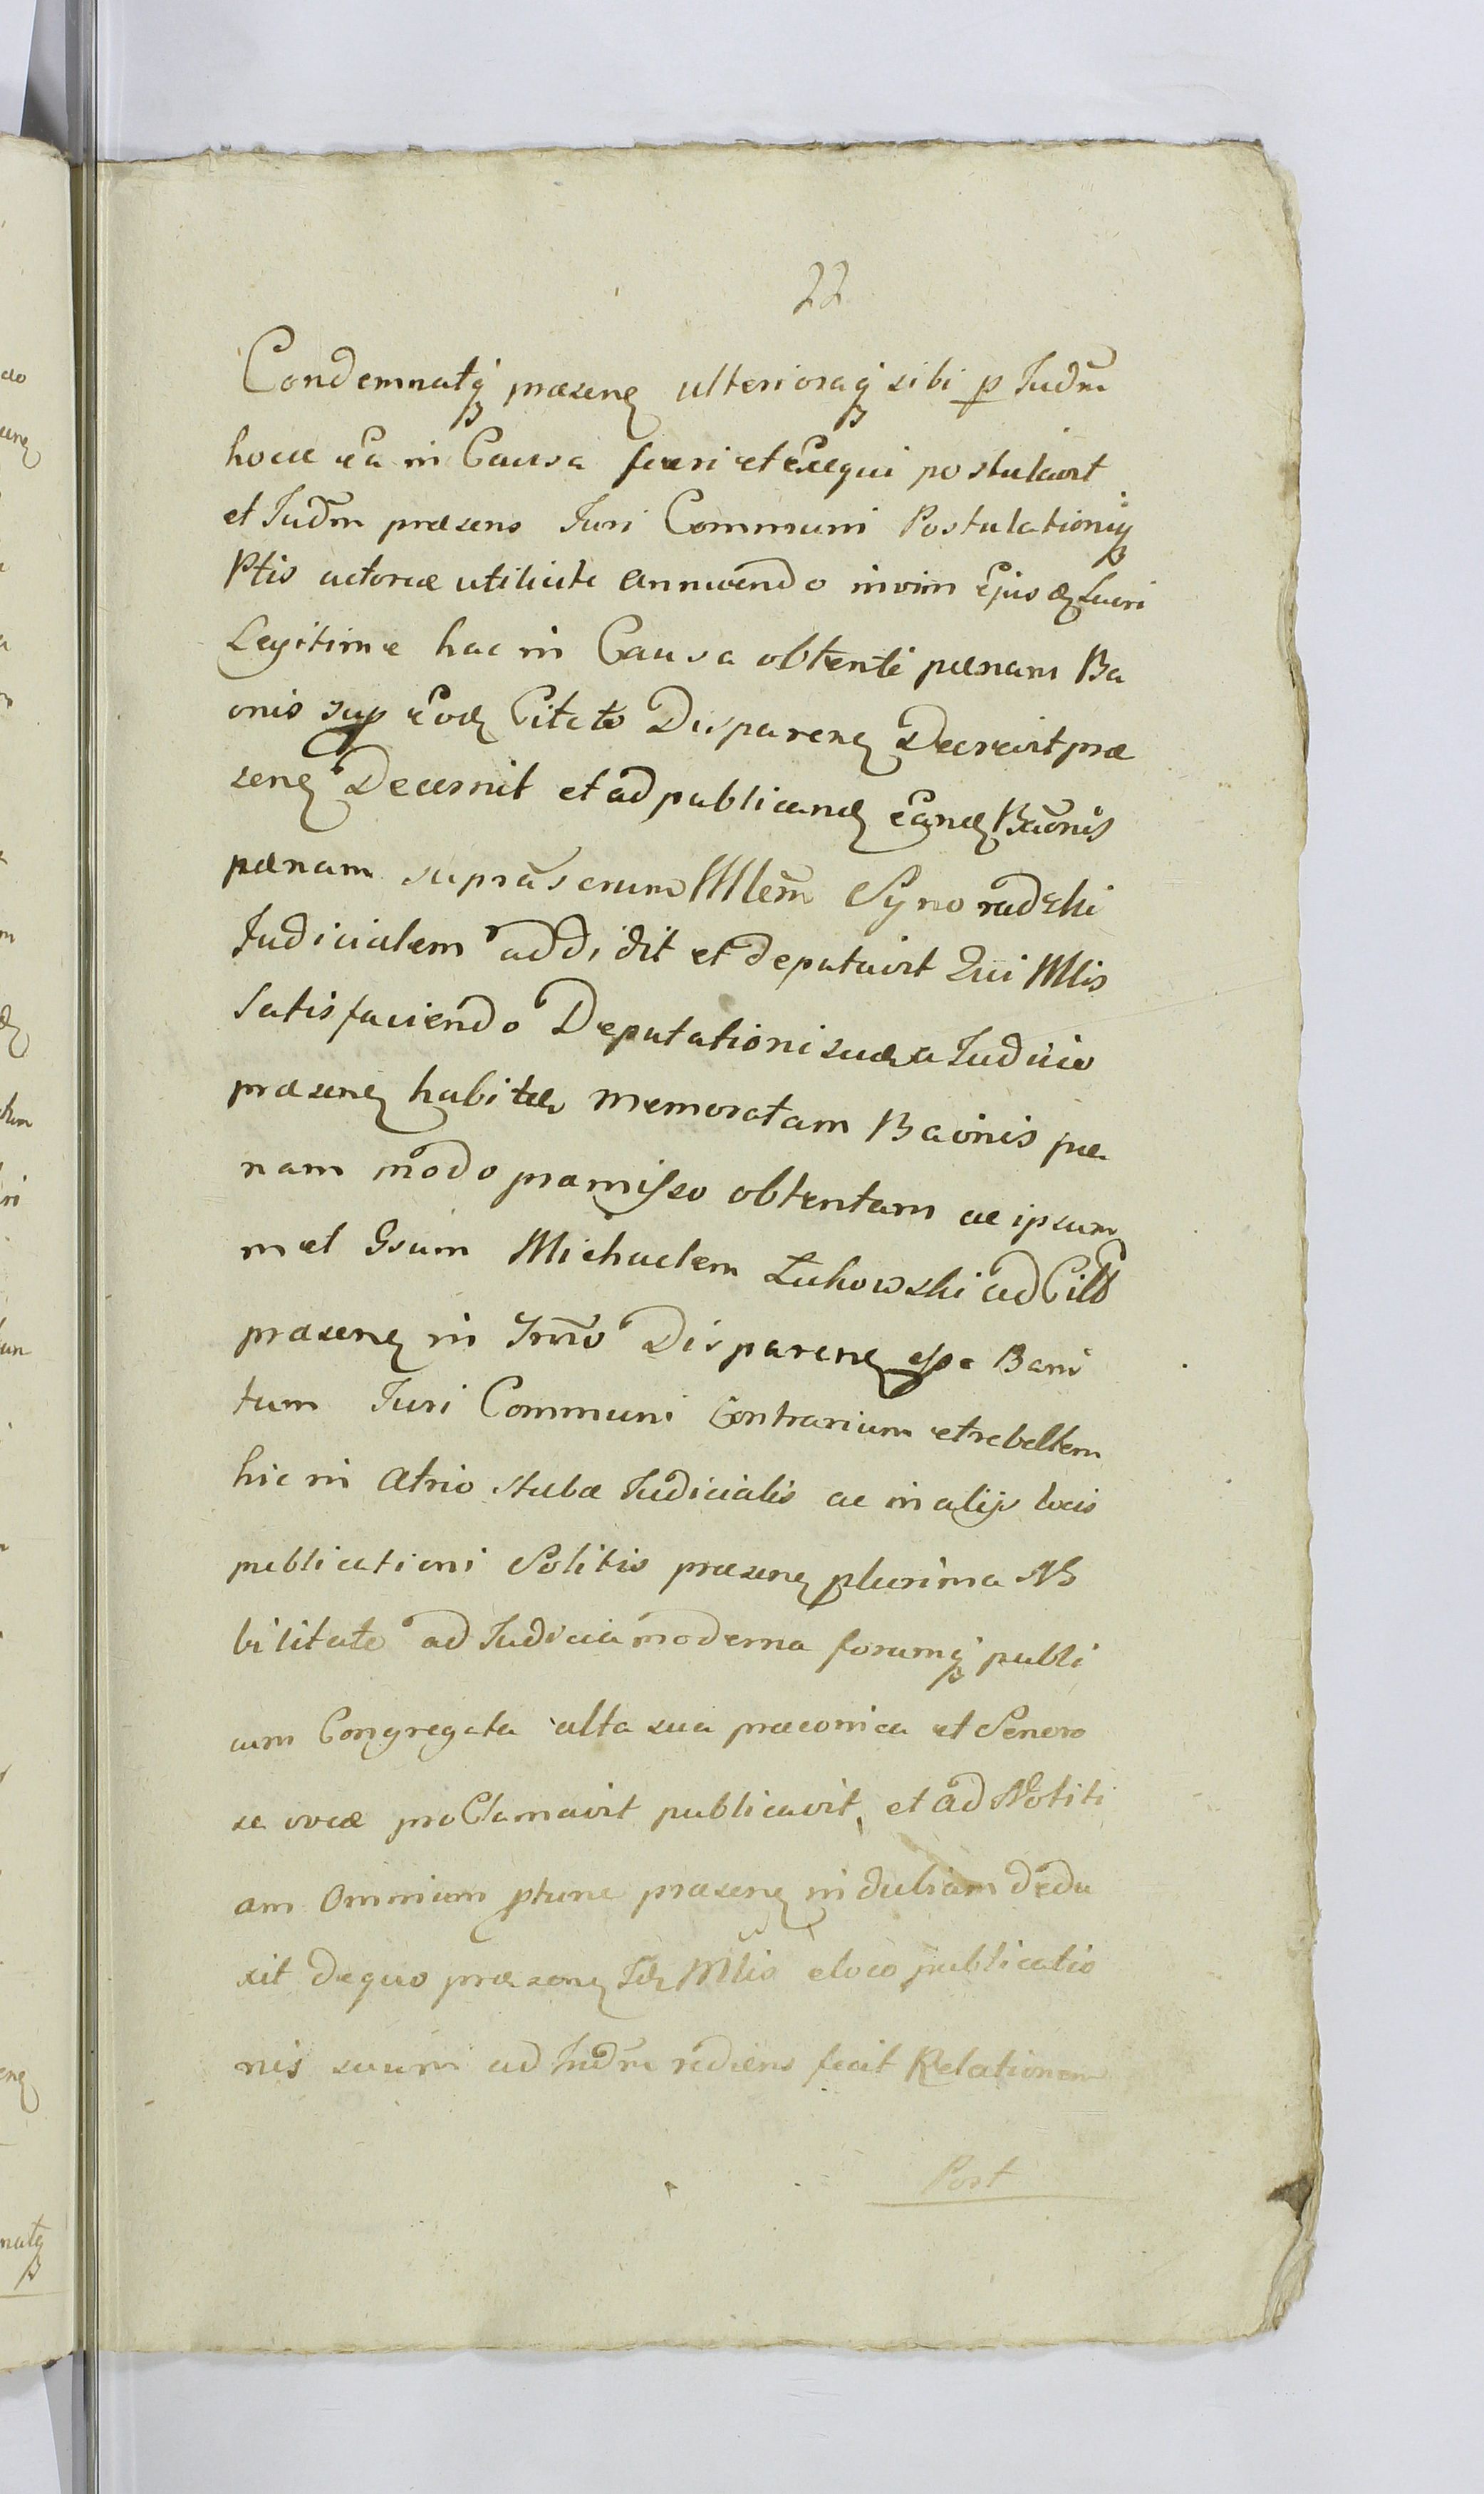 22
Condemnatq₃ præsenꝫ ulterioraq₃ sibi p Judm̄
hocce ea in Causa fieri et exequi postulavit
et Judm̄ præsens Juri Communi Postulationiq₃
Ptis actoreæ utilitate annuendo invim ejusdꝫ Lucri
Legitime hac in Causa obtenti pænam Ba
onis sup eodꝫ Citato Disparenꝫ Decrevit præ
senꝫ Decernit et ad publicandꝫ eandꝫ Bāonis
pænam Mlem̄ Synoradzki
Judicialem addidit et deputavit Qui Mlis
Satisfaciendo Deputationi suæ a Judicio
præsenꝫ habitæ memoratam Baonis pæ
nam modo præmisso obtentam ac ipsum
met Gsum Michaelem Łukowski ad
præsenꝫ in Trm̄o Disparenꝫ esse Bani
tum Juri Communi Contrarium et rebellem
hic in Atrio stubæ Judicialis ac in alijs locis
publicationi Solitis præsenꝫ plurima No
bilitate ad Judicia moderna forumq₃ publi
cum Congregata alta sua præconica et Sonoro
sa voce proClamavit publicavit, et ad Notiti
am Omnium ptunc præsenꝫ indubiam dedu
xit dequo præsenꝫ Idꝫ Mlis eloco publicatio
nis suum ad Judm̄ rediens fecit Relationem
Post
do
enꝫ
natq₃